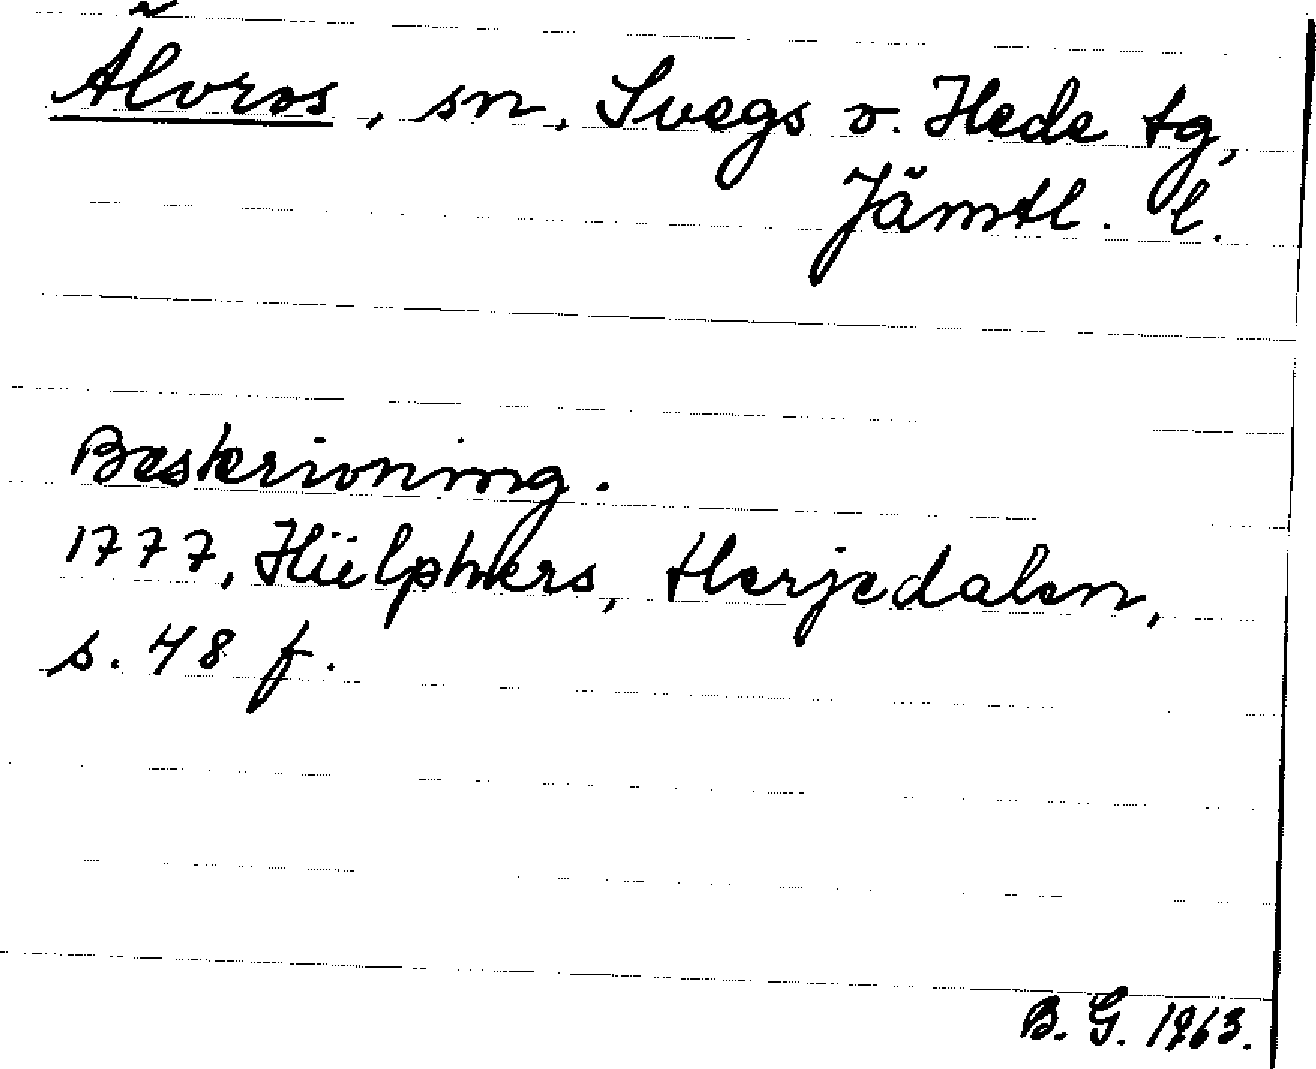 Älvros, sn, Svegs o. Hede tg,
Jämtl. l.
Beskrivning.
1777, Hülphers, Herjedalen,
s. 48 f.
B. G. 1963.